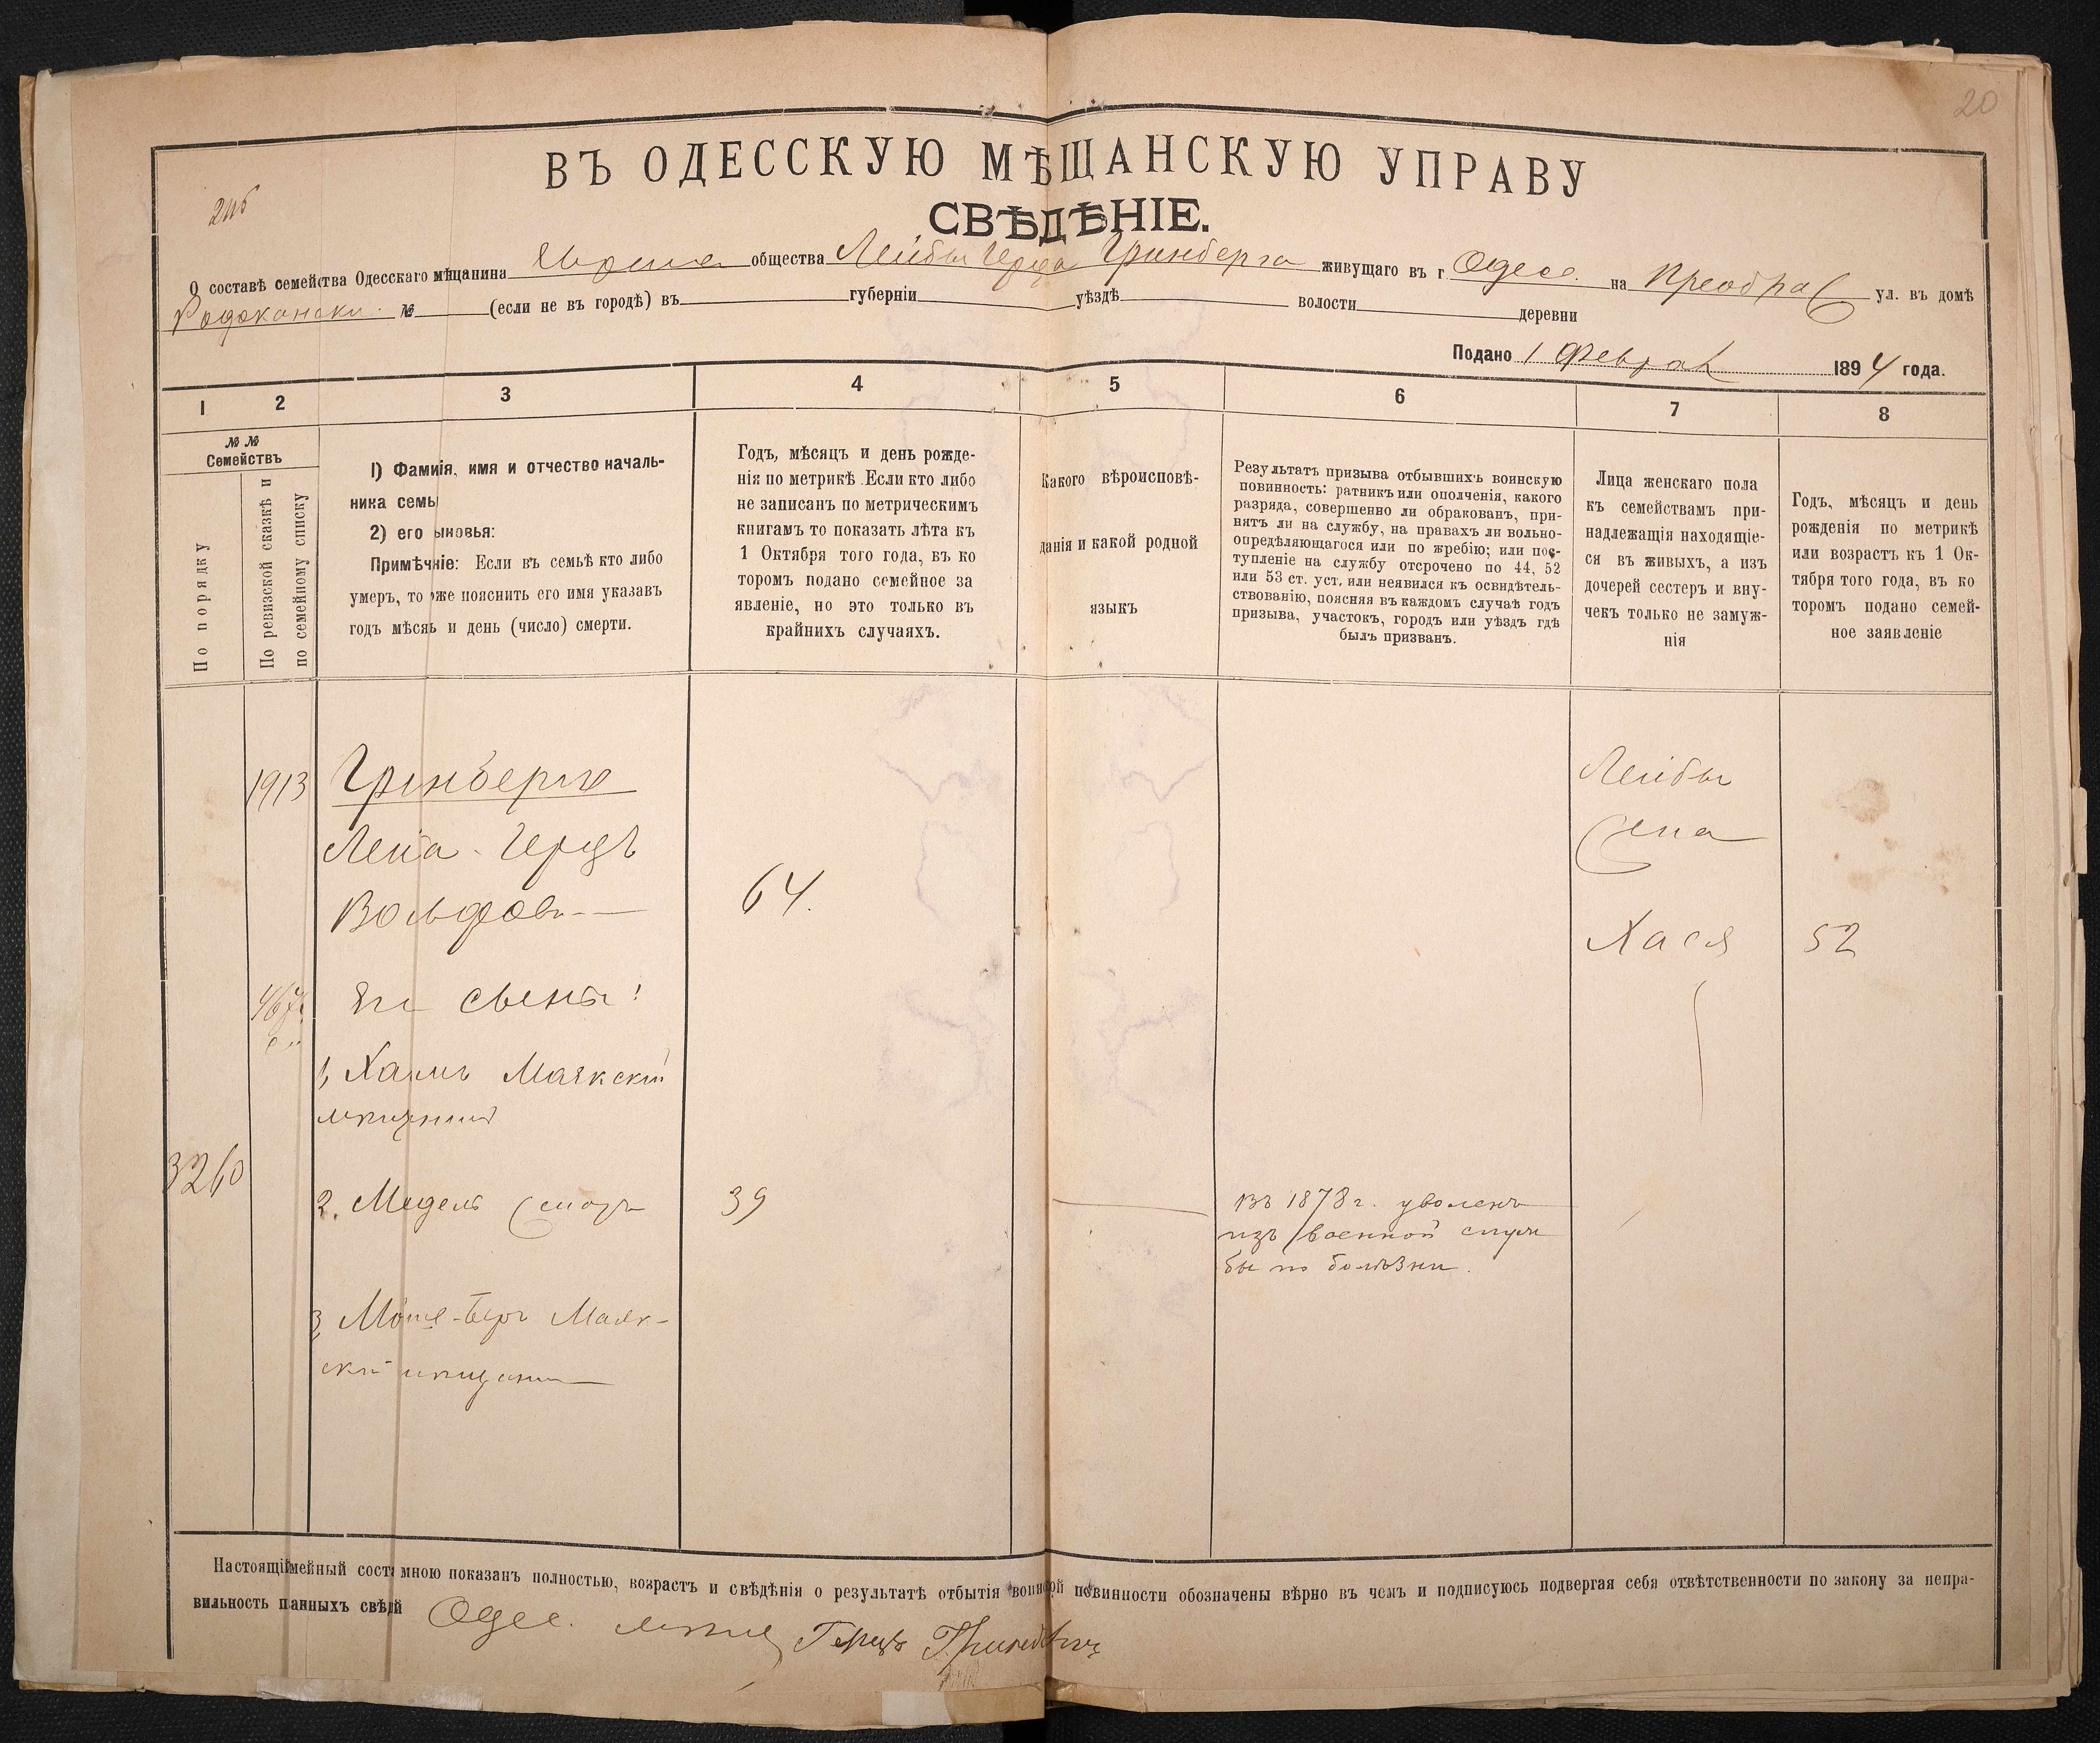 20
ВЪ ОДЕССКУЮ МѢЩАНСКУЮ УПРАВУ
СВѢДѢНІЕ.
О составѣ семейства Одесскаго мѣщанина общества Лейбы Герца Гринберга живущаго въ г Одесс. на Преобра ул. въ домѣ
Родоканаки. № (если не въ городѣ) въ губерніи уѣздѣ волости деревни
Подано 1 Феврал 1894 года.
1 2 3 4 5 6 7 8
№ № Семействъ
По порядку
По ревизской сказкѣ и
по семейному списку
1) Фамиія, имя и отчество началь-
ника семь
2) его ыновья:
Примѣчніе: Если въ семьѣ кто либо
умеръ, то же пояснить его имя указавъ
годъ мѣсяь и день (число) смерти.
Годъ, мѣсяць и день рожде-
нія по метрикѣ. Если кто либо
не записанъ по метрическимъ
книгамъ то показать лѣта къ
1 Октября того года, въ ко
торомъ подано семейное за
явленіе, но это только въ
крайнихъ случаяхъ.
Какого вѣроисповѣ-
данія и какой родной
языкъ
Результатъ призыва отбывшихъ воинскую
повинность: ратникъ или ополченія, какого
разряда, совершенно ли обракованъ, при-
нятъ ли на службу, на правахъ ли вольно-
опредѣляющагося или по жребію; или пос-
тупленіе на службу отсрочено по 44, 52
или 53 ст. уст, или неявился къ освидѣтель-
ствованію, поясняя въ каждомъ случаѣ годъ
призыва, участокъ, городъ или уѣздъ гдѣ
былъ призванъ.
Лица женскаго пола
къ семействамъ при-
надлежащія находящіе-
ся въ живыхъ, а изъ
дочерей сестеръ и вну-
чекъ только не замуж-
нія
Годъ, мѣсяць и день
рожденія по метрикѣ
или возрастъ къ 1 Ок-
тября того года, въ ко
торомъ подано семей-
ное заявленіе
1913 Гринбергъ
Лейба-Герцъ
Вольфов
64.
Лейбы
жена
Хася 52
Его сыновья:
1, Хаимъ Маякскій
мѣщанинъ
3260
2. Мадель 39
въ 1878 г. уволенъ
изъ военной служ
бы по болѣзни.
3, Моше-Беръ Маяк-
скій мѣщанин
Настоящіймейный соста мною показанъ полностью, возрастъ и свѣдѣнія о результатѣ отбытія воинской повинности обозначены вѣрно въ чемъ и подписуюсь подвергая себя отвѣтственности по закону за непра-
вильность панныхъ свѣдй Одес. мѣщ Герцъ Гринбергъ